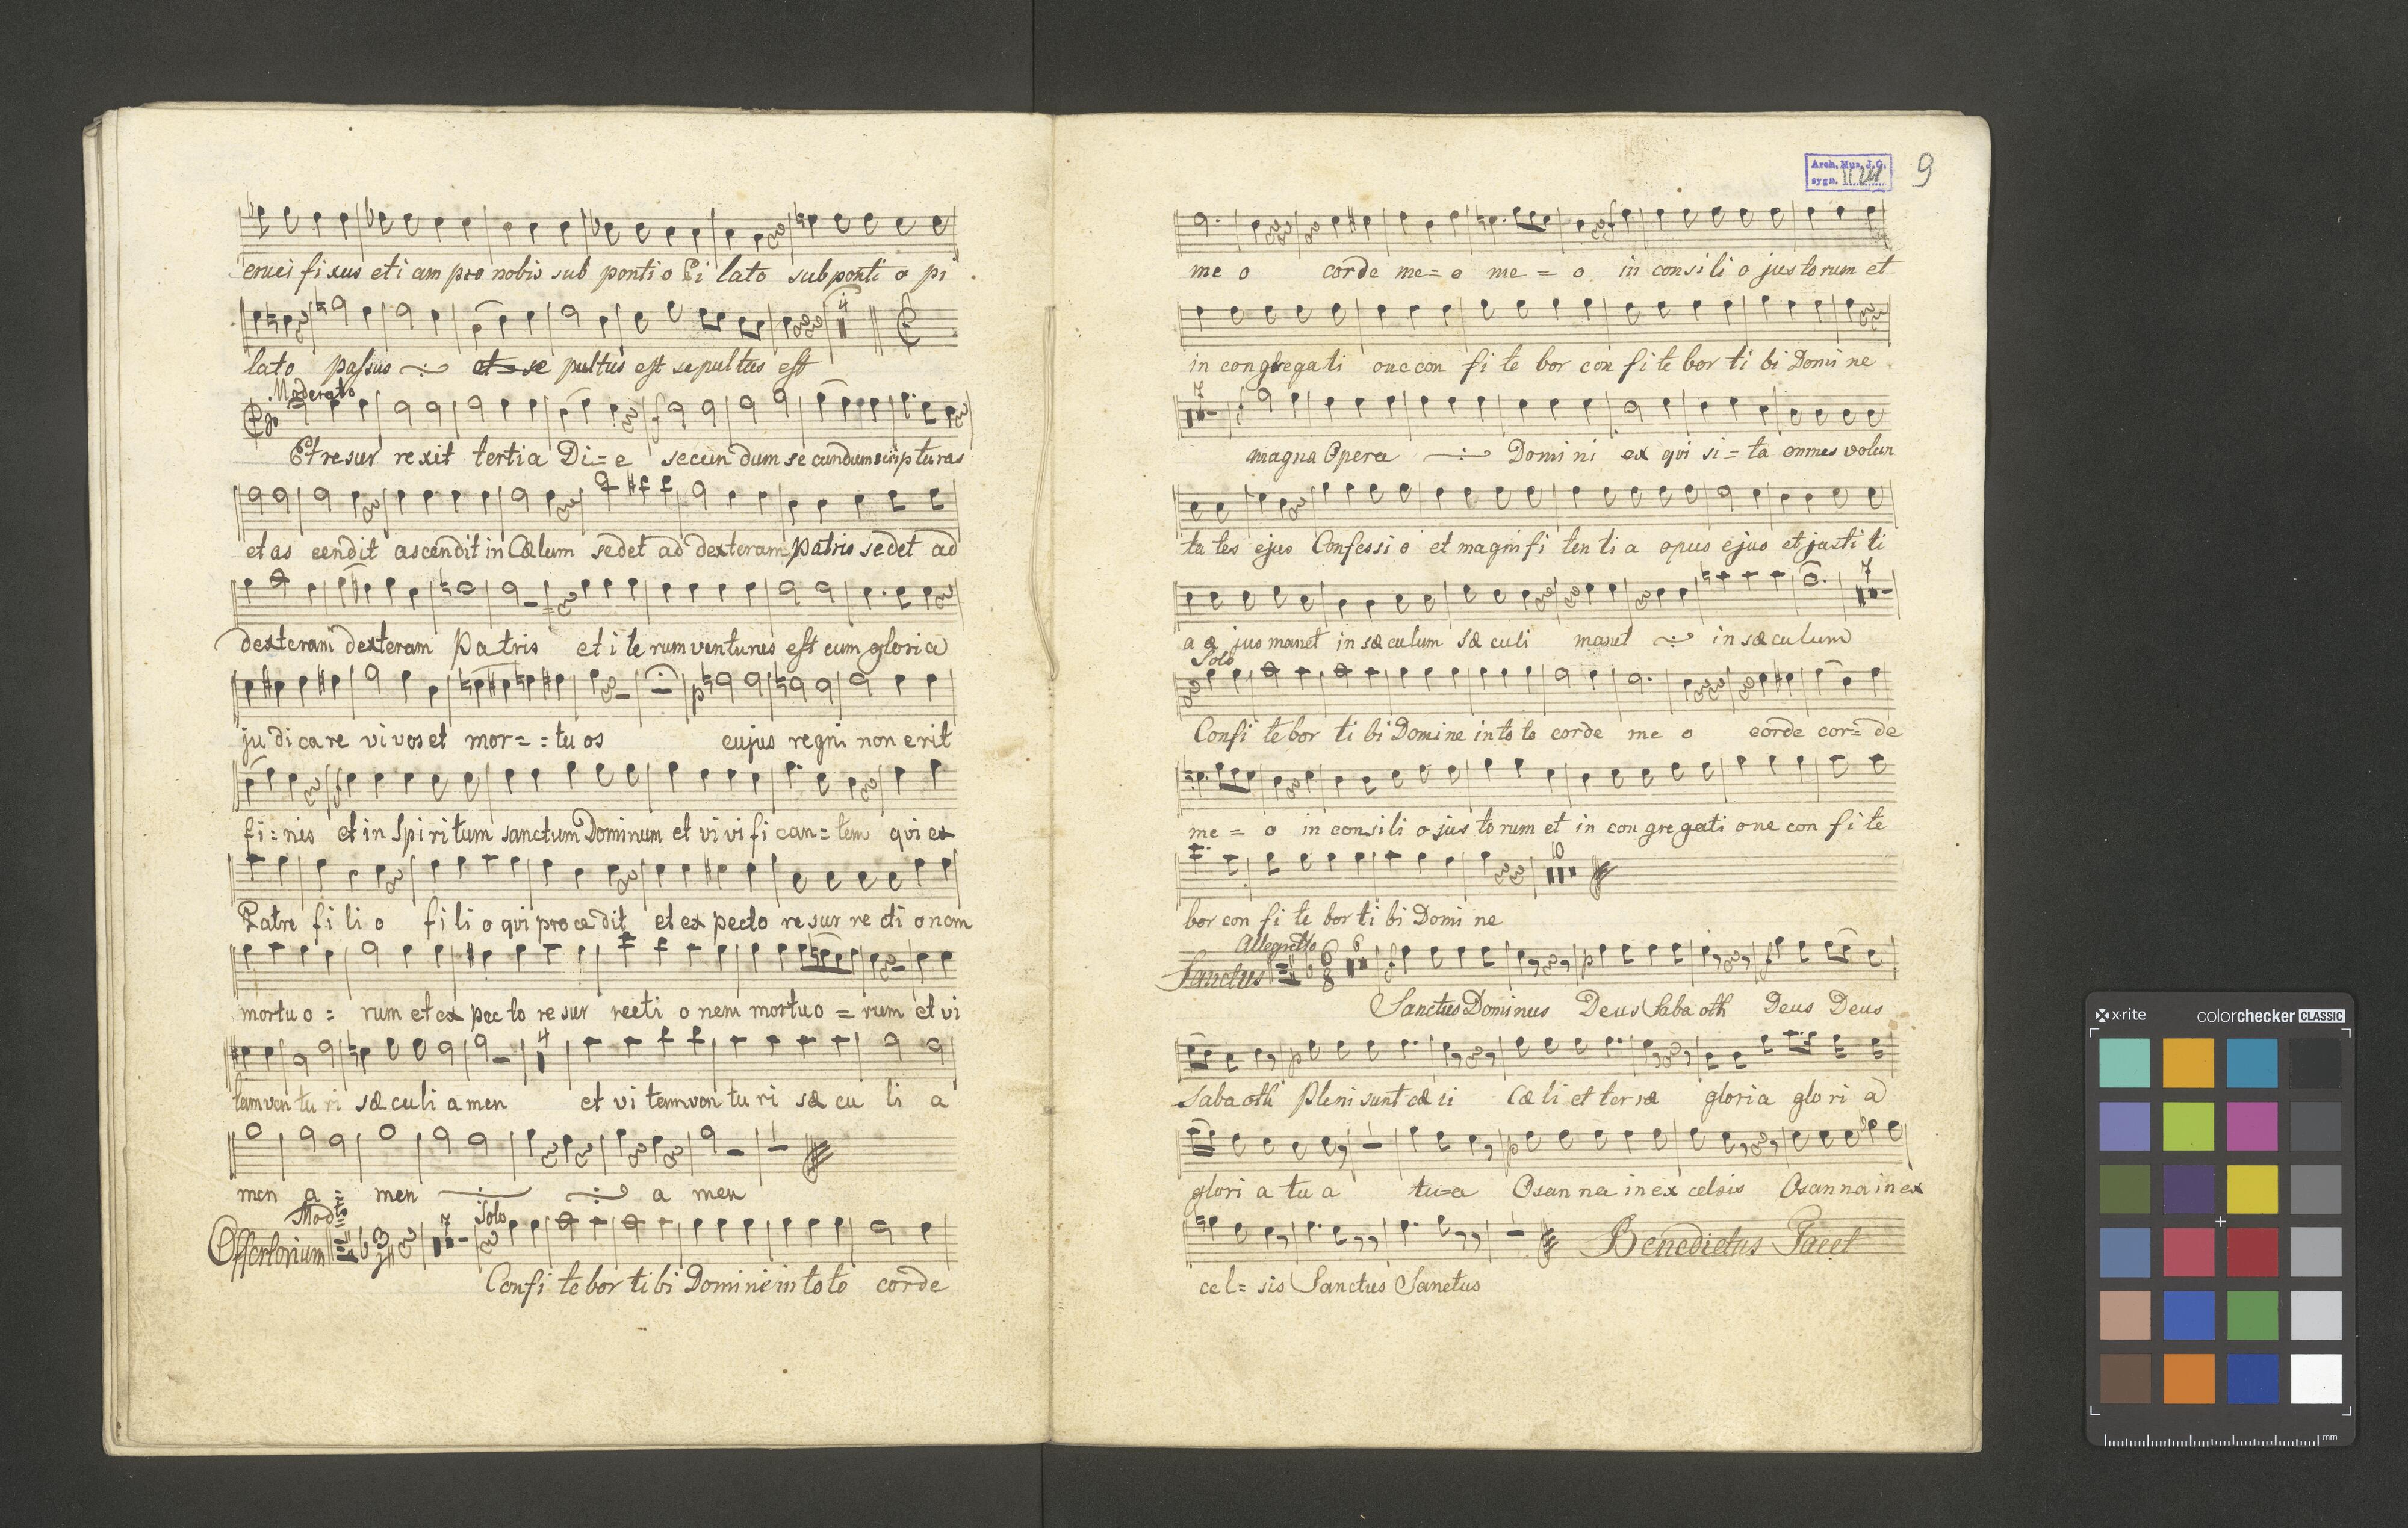 crucifixus eti am pro nobis sub ponti o Pi lato sub ponti o pi
lato passus et se pultus est sepultus est
Moderato
Et resur rexit tertia Di=e secun dum se cundum scripturas
et as cendit ascendit in Cælum sedet ad dexteram Patris sedet ad
dexteram dexteram Patris et i te rum venturus est cum gloria
ju di ca re vi vos et mor==tu os cujus regni non erit
fi=nis et in Spiritum sanctum Dominum et vi vi fi can=tem qui ex
Patre fi li o fi li o qui pro ce dit et ex pecto re sur re cti o nem
mortuo= rum et ex pec to re sur recti o nem mortuo = rum et vi
tam ven tu ri sæ cu li a men 4 et vi tam ven tu ri sæ cu li a
men a= men a men
Modto
Offertorium 3 7 Solo
Confi te bor ti bi Domine in to to corde
Arch. Muz. J. G.
sygn.
9
me o corde me=o me=o in consi li o justorum et
in congregati one con fi te bor con fi te bor ti bi Domi ne
7
magna Opera Domi ni ex qui si=ta omnes volun
ta tes ejus Confessi o et magnifi ten ti a opus ejus et justi ti
7
a e jus manet in sæ culum sæ culi manet in sæ culum
Solo
Confi te bor ti bi Domine in to to corde me o corde cor=de
me = o in consili o jus to rum et in con gregati one con fi te
10
bor con fi te bor ti bi Domi ne
Allegretto
Sanctus 6 8 6
Sanctus Dominus Deus Saba oth Deus Deus
Saba oth Pleni sunt cæ li Cæ li et terræ gloria glo ri a
glori a tu a tu=a Osan na in ex celsis Osanna in ex
Benedictus Tacet
cel=sis Sanctus Sanctus
x-rite colorchecker CLASSIC
mm